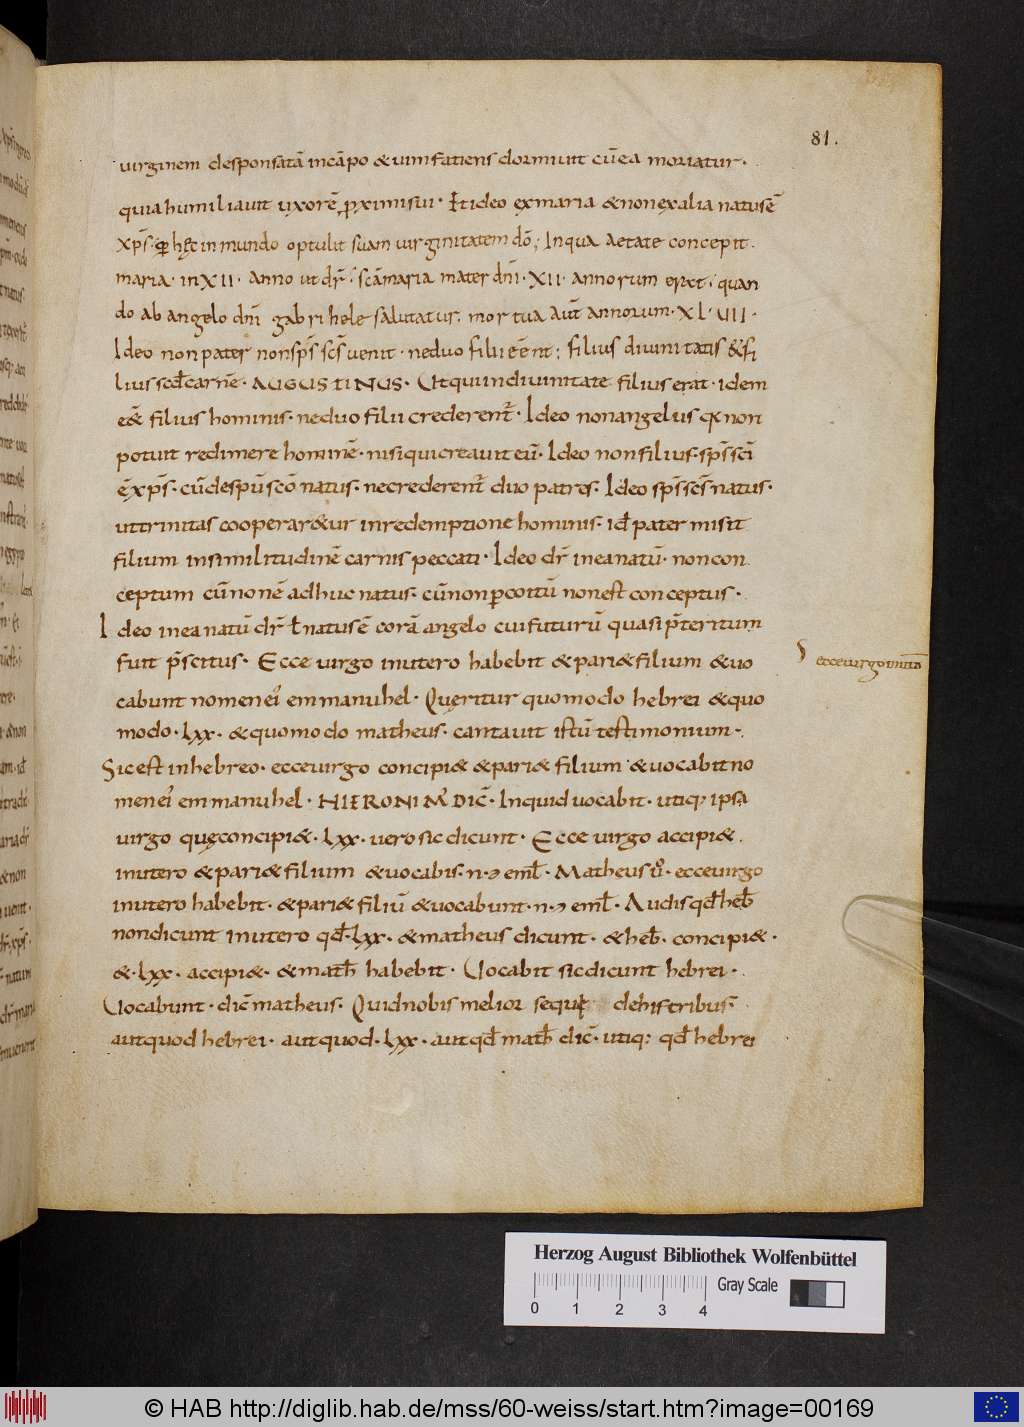 81.
uirginem desponsatā incāpo & uim fatiens dormiuit cūea moriatur.
quia humiliauit uxorē p̱ximi sui · Et ideo ex maria & non exalia natus ē
xp̄s · in mundo optulit suam uirginitatem dō; In qua aetate concepit .
maria · in XII · anno ut dr̄ · scā maria mater dn̄i · XII · annorum erat; quan
do ab angelo dn̄i gabrihele salutatur. mortua aut̄ annorum · XL·VII ·
Ideo non pater non sp̄s sc̄s uenit · ne duo filii eēnt; filius diuinitatis & fi
lius scd̄ carnē · AUGUSTINUS · Ut qui in diuinitate filius erat · idem
e& filius hominis · ne duo filii crederent̄ · Ideo non angelus quia non
potuit redimere hominē · nisi qui creauit eū · Ideo non filius · sp̄s sc̄i
ē xp̄s · cū despū scō natus · ne crederent̄ duo patres · Ideo sp̄s sc̄s natus ·
ut trinitas cooperar&ur in redemptione hominis · id̄ pater misit
filium in similitudinē carnis peccati · Ideo dr̄ in ea natū · non con
ceptum cū non ē adhuc natus · cū non p̱ coitū non est conceptus ·
Ideo in ea natū dr̄ ł natus ē corā angelo cui futurū quasi p̄teritum
fuit p̄scitus · Ecce uirgo inutero habebit & pari& filium & uo
ecce uirgo in ut
cabunt nomen ei' emmanuhel · Queritur quomodo hebrei & quo
modo · LXX · & quomodo matheus · cantauit istū testimonium ·
Sic est in hebreo · ecce uirgo concipi& & pari& filium & uocabit no
men ei' emmanuhel · HIERONIM' DIC̄ · Inquid uocabit · utiq; ipsa
uirgo quę concipi& · LXX · uero sic dicunt · Ecce uirgo accipi& .
inutero & pari& filium & uocabis · n · 9 eml̄ · Matheus ů · ecce uirgo
inutero habebit · & pari& filiū & uocabunt · n · 9 eml̄ · Audis qd̄ heb̄
non dicunt inutero qd̄ · LXX · & matheus dicunt · & heb̄ · concipi& ·
& · LXX · accipi& · & math̄ habebit · Uocabit sic dicunt hebrei ·
Uocabunt · dic̄ matheus · Quid nobis melior sequi de his tribus ·
aut quod hebrei · aut quod · LXX · aut qd̄ math̄ dic̄ · utiq; qd̄ hebrei
Herzog August Bibliothek Wolfenbüttel
Gray Scale
0 1 2 3 4
© HAB http://diglib.hab.de/mss/60-weiss/start.htm?image=00169